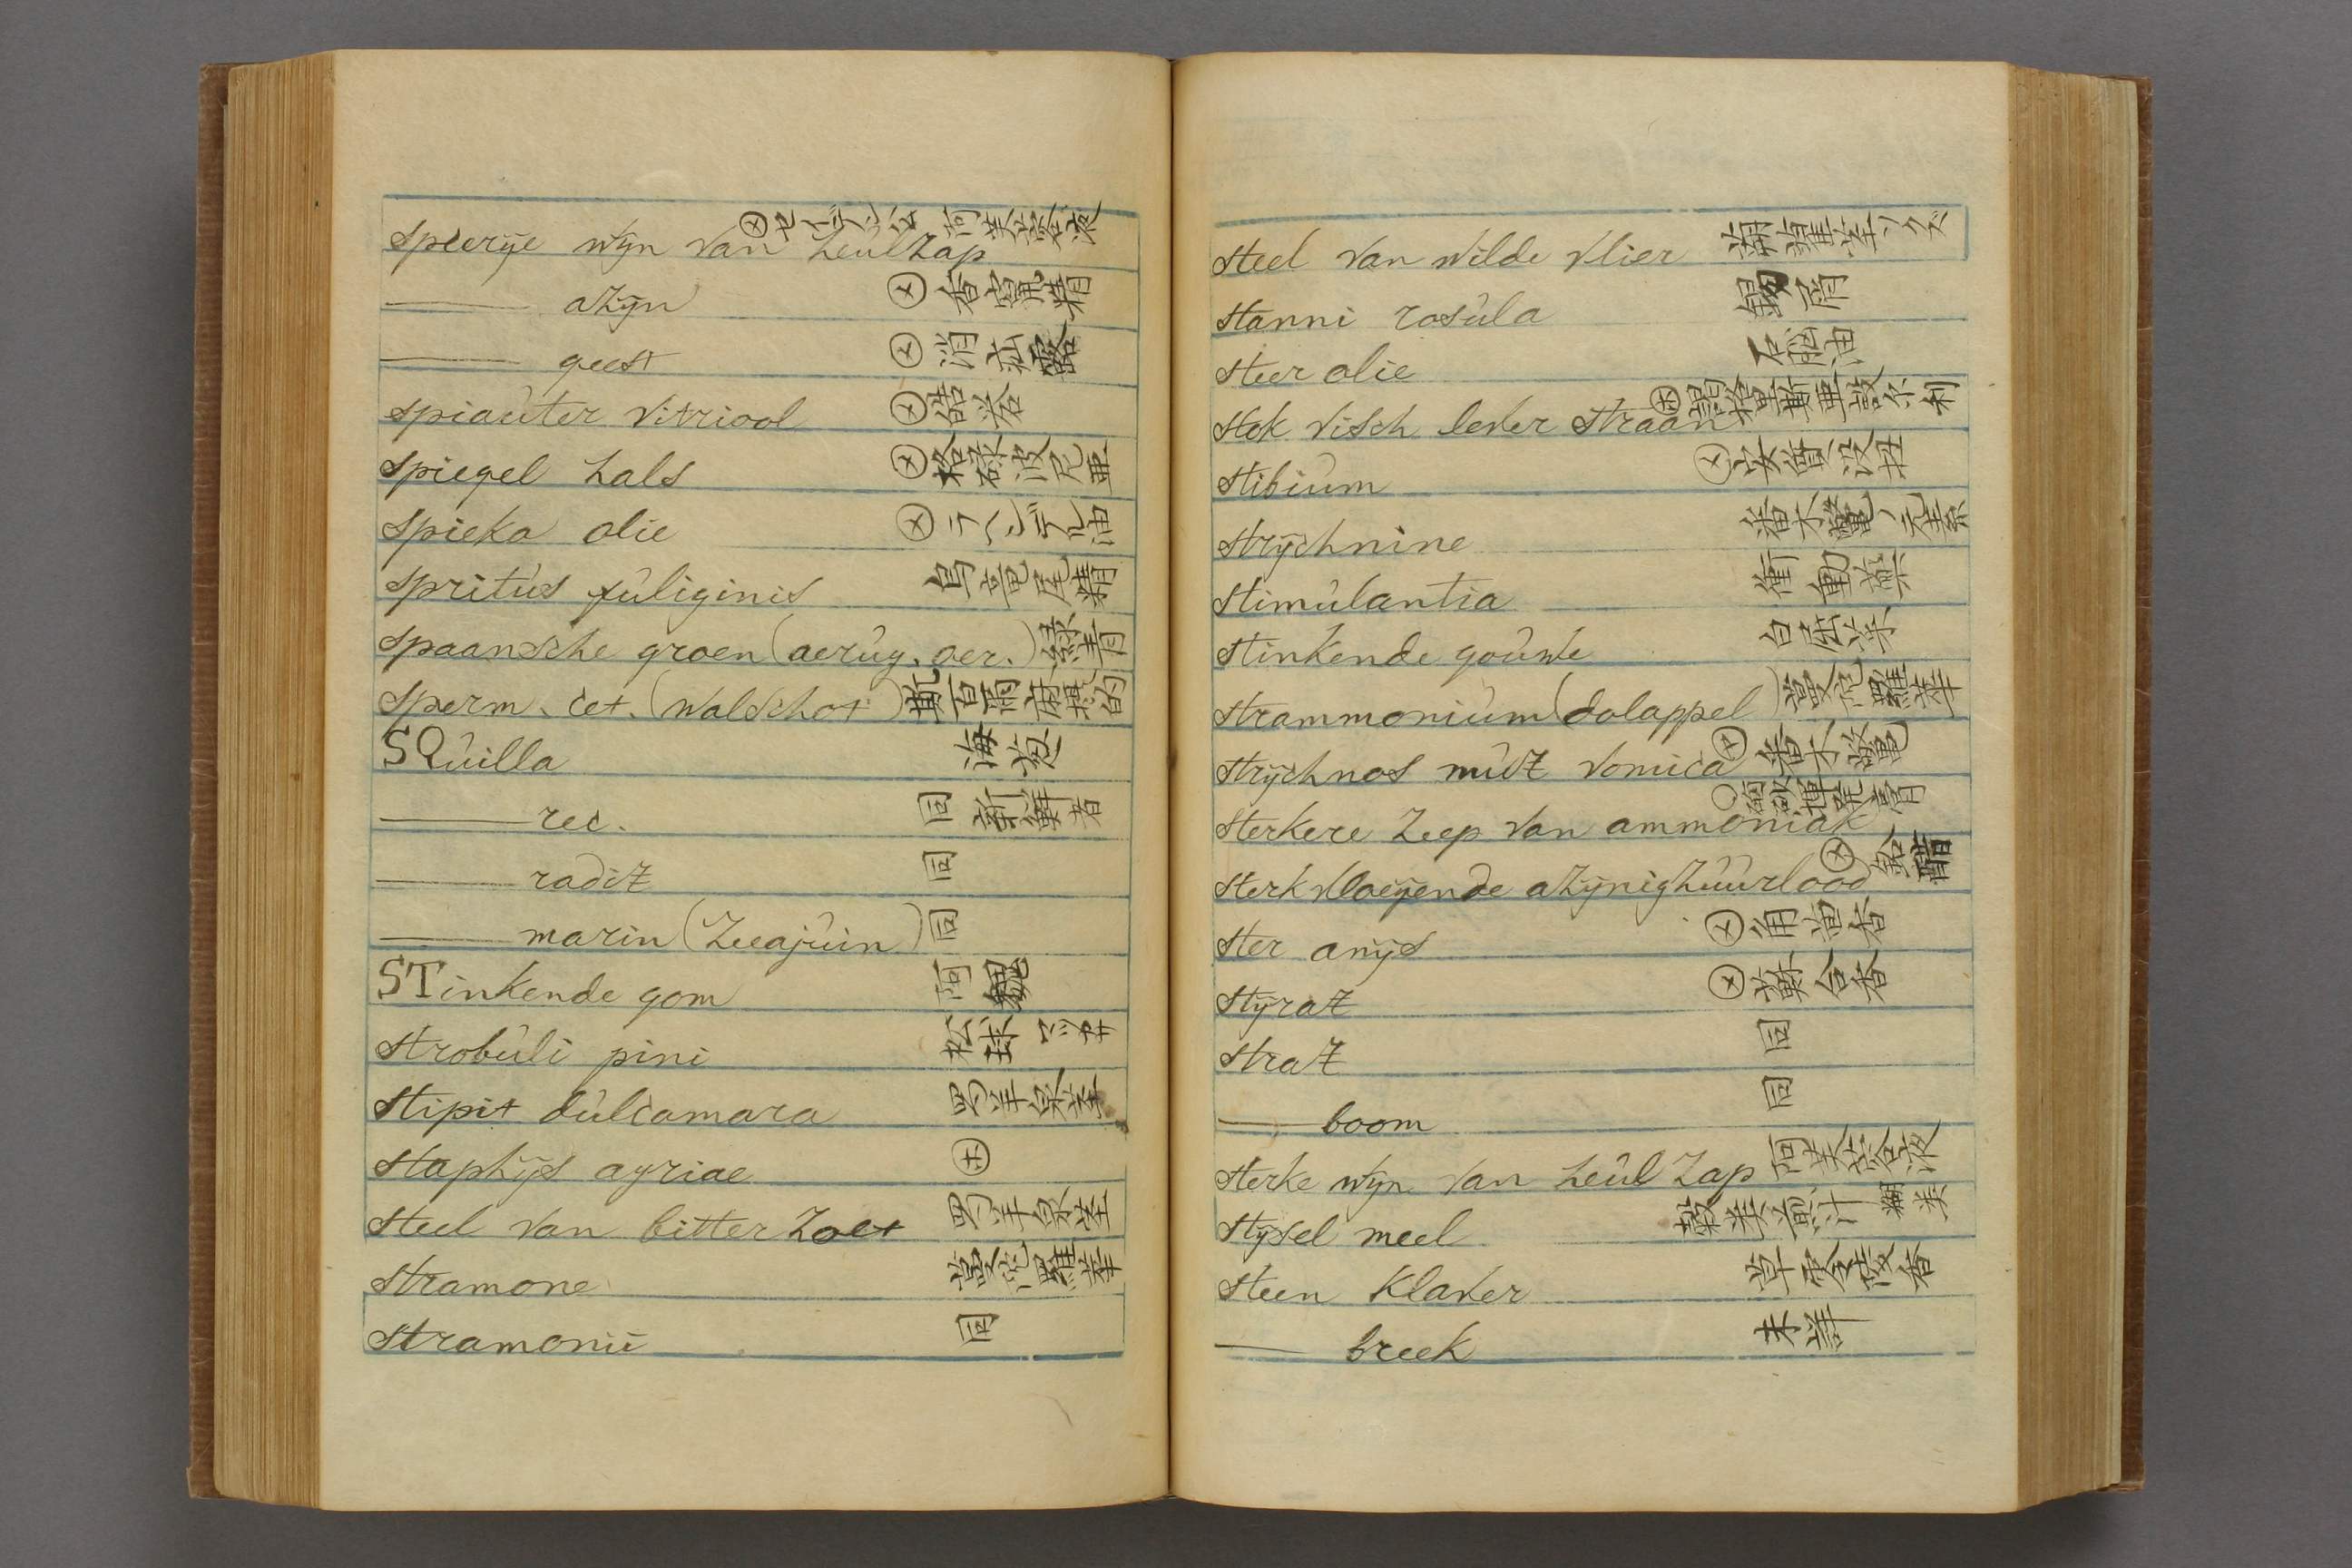 Specrije wijn van heulzap
azijn
geest
Spiauter vitriool
Spiegel hals 格碌波尼亜
Spieka olie
Spritus fuliginis 烏竜尾精
Spaansche groen (aerug. aer.) 緑青
Sperm. cet. (walschot)
SQuilla 海葱
rec. 同 新鮮者
radiz 同
marin (Zeeajuin) 同
STinkende gom 阿魏
Strobuli pini 松球
Stipit dulcamara 蜀羊泉茎
Staphijs agriae
Steel van bitter Zoet 蜀羊泉茎
Stramone 曼陀羅華
Stramonii 同
Steel van wilde vlier
Stanni rosula 錫屑
Steer olie 石脳油
Stok visch lever straan
Stibium 安質没扭
Strijchnine 番木鼈ノ元素
Stimulantia 衝動薬
Stinkende gouwe 白屈菜
Strammonium (dolappel) 曼陀羅華
Strijchnos nuz vomica 番木鼈
Sterkere Zeep van ammoniak
Sterkvloeijende azijnigzuurlood 鉛醋
Ster anijs 角茴香
Stijraz 蘇合香
Straz 同
boom 同
Sterke wijn van heulzap 阿芙蓉液
Stijsel meel
Steen Klaver
breek 未詳